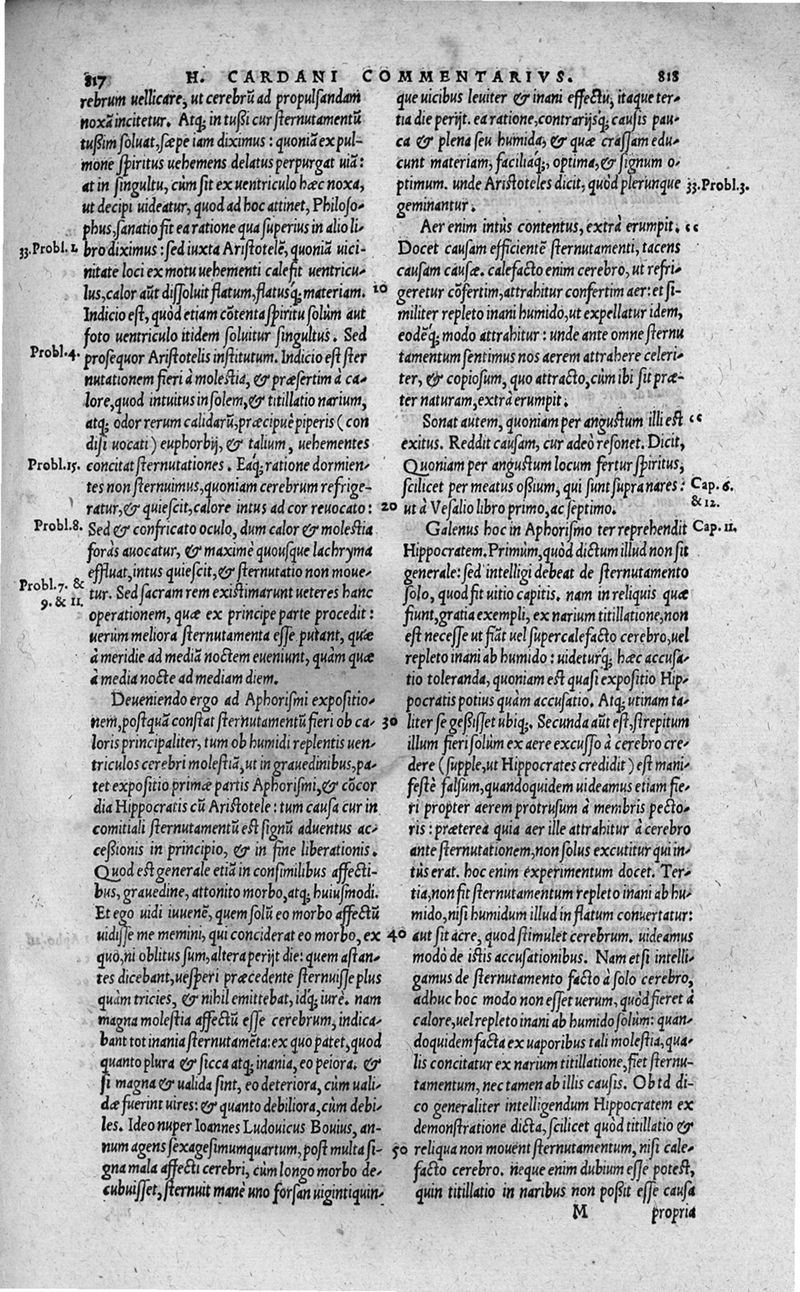 817 H. CARDANI COMMENTARIVS. 818
rebrum uellicare, ut cerebrũ ad propulsandam
noxã incitetur. Atq́; in tußi cur sternutamentũ
tußim soluat, sæpe iam diximus: quoniã ex pul-
mone spiritus uehemens delatus perpurgat uiã:
at in singultu, cùm sit ex uentriculo hæc noxa,
ut decipi uideatur, quod ad hoc attinet, Philoso-
phus, sanatio fit ea ratione qua superius in alio li-
33. Probl. 1. bro diximus: sed iuxta Aristotelẽ, quoniã uici-
nitate loci ex motu uehementi calefit uentricu-
lus, calor aũt dissoluit flatum, flatusq́; materiam. 10
Indicio est, quod etiam cõtenta spiritu solùm aut
foto uentriculo itidem soluitur singultus. Sed
Probl. 4. prosequor Aristotelis institutum. Indicio est ster
nutationem fieri à molestia, & præsertim à ca-
lore, quod intuitus in solem, & titillatio narium,
atq; odor rerum calidarũ, præcipuè piperis (con
disi uocati) euphorbij, & talium, uehementes
Probl. 15. concitat sternutationes. Eaq́; ratione dormien-
tes non sternuimus, quoniam cerebrum refrige-
ratur, & quiescit, calore intus ad cor reuocato: 20
Probl. 8. Sed & confricato oculo, dum calor & molestia
foràs auocatur, & maximè quousque lachryma
effluat, intus quiescit, & sternutatio non moue-
Probl. 7. & 9. & 11. tur. Sed sacram rem existimarunt ueteres hanc
operationem, quæ ex principe parte procedit:
uerùm meliora sternutamenta esse putant, quæ
à meridie ad mediã noctem eueniunt, quàm quæ
à media nocte ad mediam diem.
Deueniendo ergo ad Aphorismi expositio-
nem, postquã constat sternutamentũ fieri ob ca- 30
loris principaliter, tum ob humidi replentis uen-
triculos cerebri molestiã, ut in grauedinibus, pa-
tet expositio primæ partis Aphorismi, & cõcor
dia Hippocratis cũ Aristotele: tum causa cur in
comitiali sternutamentũ est signũ aduentus ac-
ceßionis in principio, & in fine liberationis.
Quod est generale etiã in consimilibus affecti-
bus, grauedine, attonito morbo, atq; huiusmodi.
Et ego uidi iuuenẽ, quem solũ eo morbo affectũ
uidisse me memini, qui conciderat eo morbo, ex 40
quo, ni oblitus sum, altera perijt die: quem astan-
tes dicebant, uesperi præcedente sternuisse plus
quàm tricies, & nihil emittebat, idq́; iurè. nam
magna molestia affectũ esse cerebrum, indica-
bant tot inania sternutamẽta: ex quo patet, quod
quanto plura & sicca atq; inania, eo peiora. &
si magna & ualida sint, eo deteriora, cùm uali-
dæ fuerint uires: & quanto debiliora, cùm debi-
les. Ideo nuper Ioannes Ludouicus Bouius, an-
num agens sexagesimumquartum, post multa si- 50
gna mala affecti cerebri, cùm longo morbo de-
cubuisset, sternuit manè uno forsan uigintiquin-
que uicibus leuiter & inani effectu, itaque ter-
tia die perijt. ea ratione, contrarijsq́; causis pau-
ca & plena seu humida, & quæ crassam edu-
cunt materiam, faciliaq́;, optima, & signum o-
ptimum. unde Aristoteles dicit, quòd plerunque 33. Probl. 3.
geminantur.
Aer enim intùs contentus, extrà erumpit. “
Docet causam efficientẽ sternutamenti, tacens
causam causæ. calefacto enim cerebro, ut refri-
geretur cõfertim, attrahitur confertim aer: et si-
militer repleto inani humido, ut expellatur idem,
eodẽq́; modo attrahitur: unde ante omne sternu
tamentum sentimus nos aerem attrahere celeri-
ter, & copiosum, quo attracto, cùm ibi sit præ-
ter naturam, extrà erumpit.
Sonat autem, quoniam per angustum illi est “
exitus. Reddit causam, cur adeò resonet. Dicit,
Quoniam per angustum locum fertur spiritus,
scilicet per meatus oßium, qui sunt supra nares: Cap. 6. & 12.
ut à Vesalio libro primo, ac septimo.
Galenus hoc in Aphorismo ter reprehendit Cap. 11.
Hippocratem. Primùm, quòd dictum illud non sit
generale: sed intelligi debeat de sternutamento
solo, quod fit uitio capitis. nam in reliquis quæ
fiunt, gratia exempli, ex narium titillatione, non
est necesse ut fiãt uel supercalefacto cerebro, uel
repleto inani ab humido: uideturq́; hæc accusa-
tio toleranda, quoniam est quasi expositio Hip-
pocratis potius quàm accusatio. Atq; utinam ta-
liter se geßisset ubiq;. Secunda aũt est, strepitum
illum fieri solùm ex aere excusso à cerebro cre-
dere (supple, ut Hippocrates credidit) est mani-
festè falsum, quandoquidem uideamus etiam fie-
ri propter aerem protrusum à membris pecto-
ris: præterea quia aer ille attrahitur à cerebro
ante sternutationem, non solus excutitur qui in-
tùs erat. hoc enim experimentum docet. Ter-
tia, non fit sternutamentum repleto inani ab hu-
mido, nisi humidum illud in flatum conuertatur:
aut sit acre, quod stimulet cerebrum. uideamus
modò de istis accusationibus. Nam etsi intelli-
gamus de sternutamento facto à solo cerebro,
adhuc hoc modo non esset uerum, quòd fieret à
calore, uel repleto inani ab humido solùm: quan-
doquidem facta ex uaporibus tali molestia, qua-
lis concitatur ex narium titillatione, fiet sternu-
tamentum, nec tamen ab illis causis. Ob id di-
co generaliter intelligendum Hippocratem ex
demonstratione dicta, scilicet quòd titillatio &
reliqua non mouent sternutamentum, nisi cale-
facto cerebro. neque enim dubium esse potest,
quin titillatio in naribus non poßit esse causa
M propria